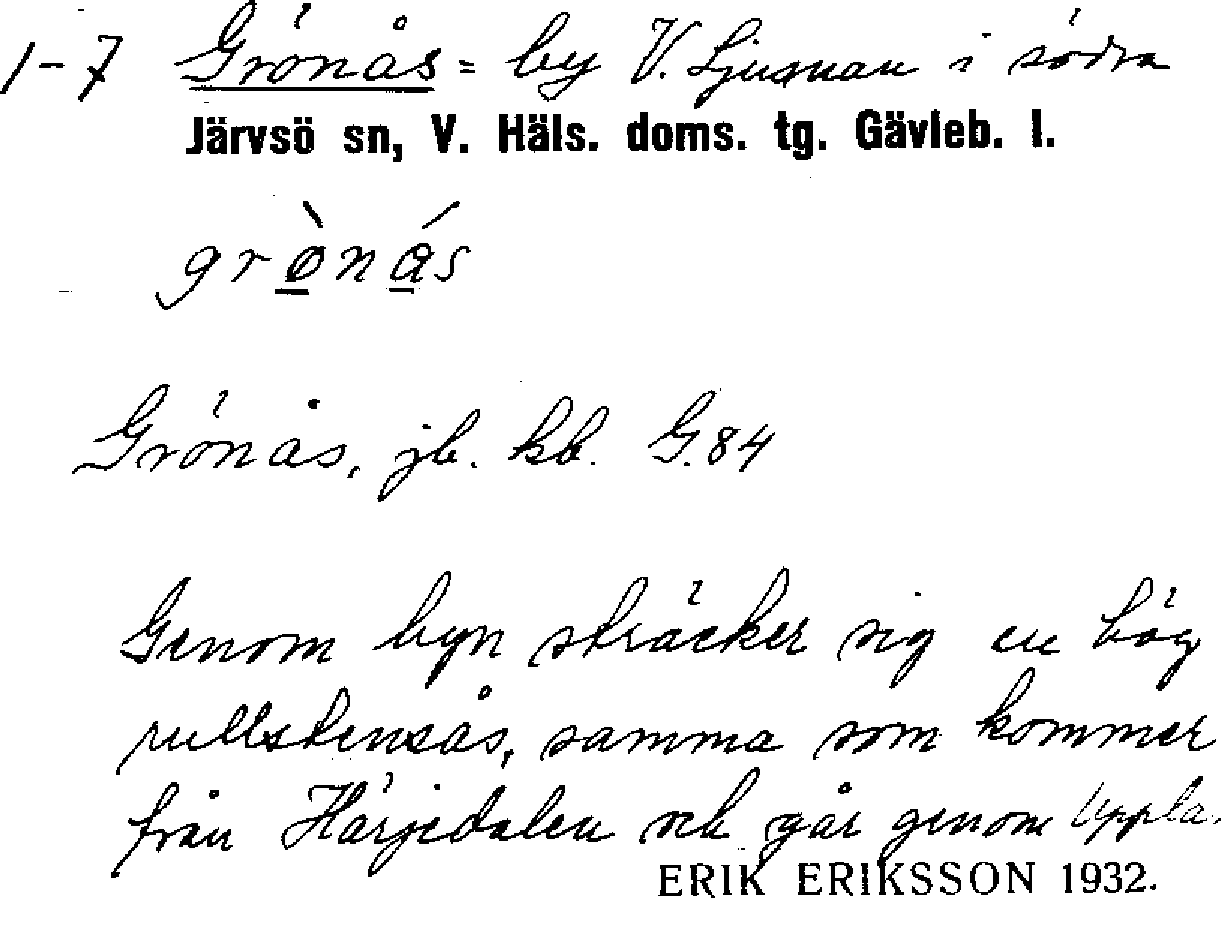 1-7 Grönås = by V. Ljusnan i södra
Järvsö sn, V. Häls. doms. tg. Gävleb. l.
grø̀nás
Grönås, jb. kb. G.84
Genom byn sträcker sig en hög
rullstensås, samma som kommer
från Härjedalen och går genom Uppla
ERIK ERIKSSON 1932.